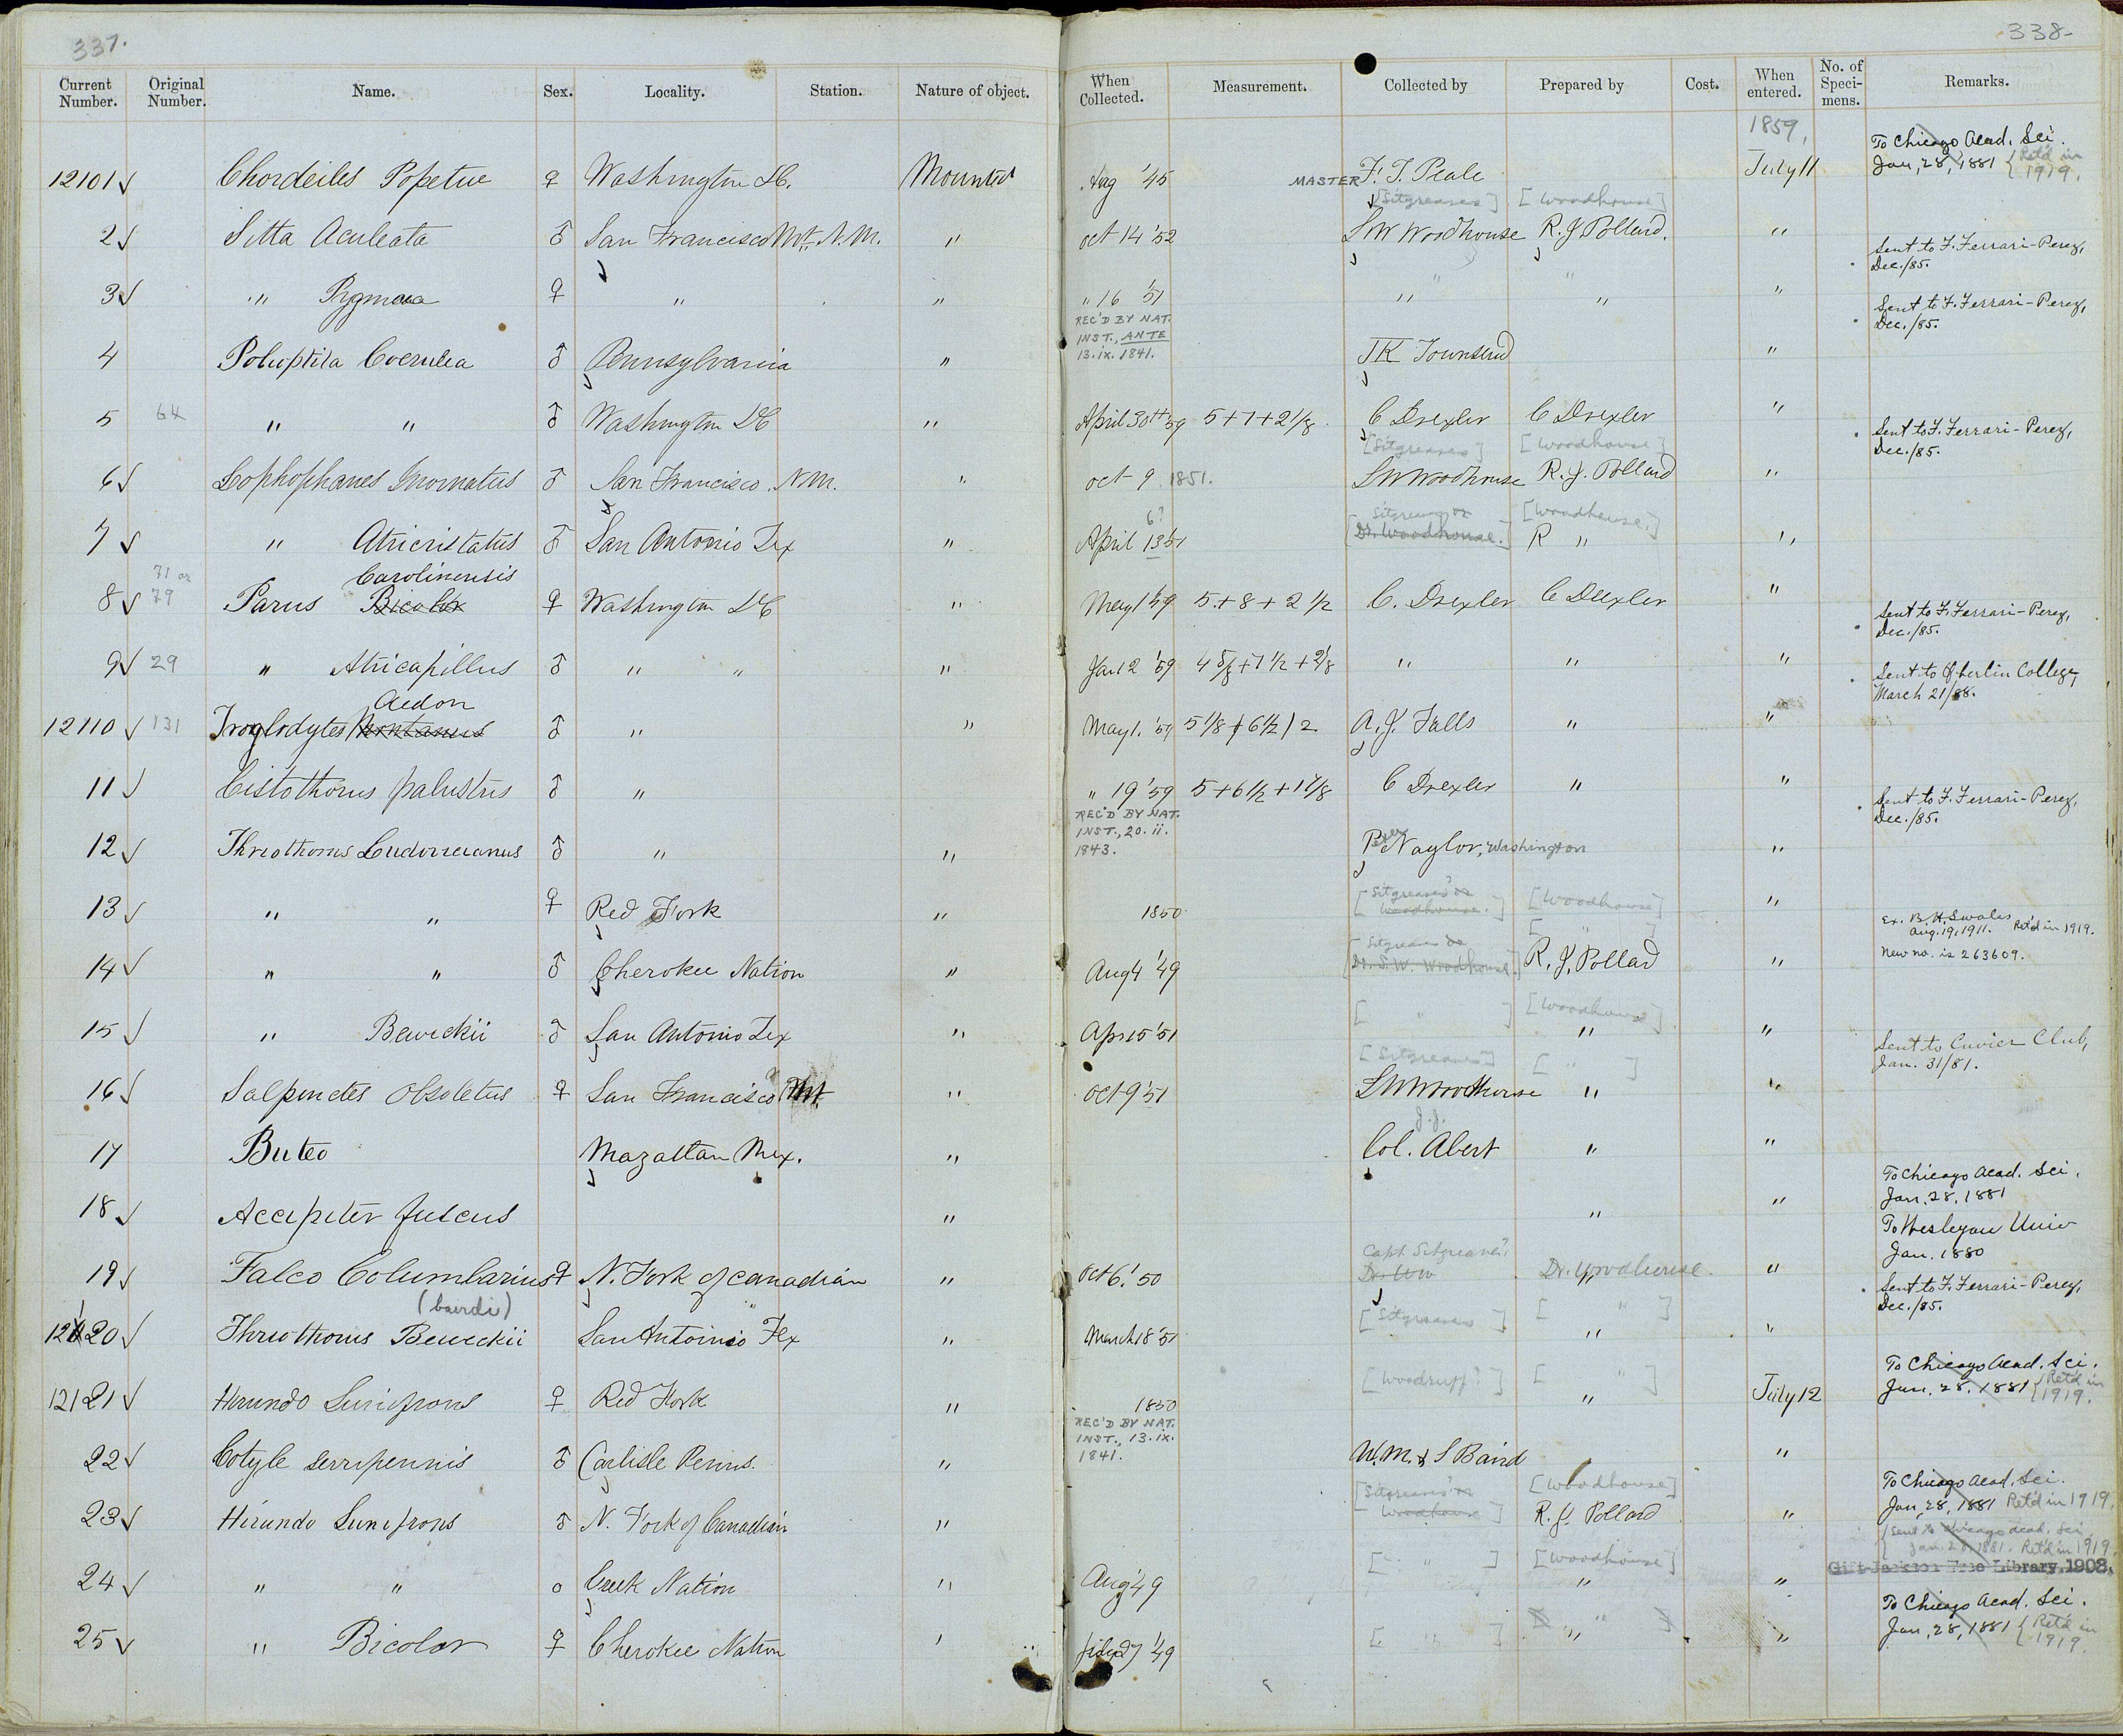 337.
338-
Current Number. Original Number. Name. Sex. Locality. Station. Nature of object. When Collected. Measurement. Collected by Prepared by Cost. When entered. No. of Speci- mens. Remarks.
1859,
To Chicago Acad. Sci.
12101 ✓ Chordeiles Popetue ♀ Washington DC. Mounted Aug '45 MASTER F. T. Peale July 11 Jan, 28, 1881 { Ret'd in 1919.
[Sitgreaves] [Woodhouse]
2 ✓ Sitta Aculeata ♂ San Francisco Mt. N.M. " Oct 14 '52 S W Woodhouse R. J Pollard. " Sent to F. Ferrari-Perez, Dec./85.
3 ✓ " Pygmaea ♀ " " " 16 '51 " " " Sent to F. Ferrari-Perez, Dec./85.
REC'D BY NAT. INST., ANTE 13.ix.1841.
4 Polioptila Coerulea ♂ Pennsylvania " J K Townsend "
5 64 " " ♂ Washington DC " April 30th '59 5+7+2 1/8 C Drexler C Drexler " Sent to F. Ferrari-Perez, Dec./85.
[Sitgreaves] [Woodhouse]
6 ✓ Lophophanes Inornatus ♂ San Francisco. N.M. " Oct 9 1851. S W Woodhouse R. J. Pollard "
6? Sitgreaves or [Woodhouse.]
7 ✓ " Atricristatus ♂ San Antonio Tex " April 13 51 [Dr. Woodhouse.] R " "
Carolinensis
8 ✓ 71 or 79 Parus Bicolor ♀ Washington DC " May 1 '59 5+8+2 1/2 C. Drexler C Drexler " Sent to F. Ferrari-Perez, Dec./85.
9 ✓ 29 " Atricapillus ♂ " " " Jan 2 '59 4 5/8+7 1/2+2 1/8 " " " Sent to Oberlin College, March 21/88.
Aedon
12110 ✓ 131 Troglodytes Montanus ♂ " " May 1. '59 5 1/8 + 6 1/2 / 2 A. J. Falls " "
11 ✓ Cistothorus palustris ♂ " " 19 '59 5+6 1/2+1 7/8 C Drexler " " Sent to F. Ferrari-Perez, Dec./85.
REC'D BY NAT. INST., 20.ii. 1843.
12 ✓ Thriothorus Ludovicianus ♂ " " Peter Naylor, Washington "
[Sitgreaves? or Woodhouse.] [Woodhouse]
13 ✓ " " ♀ Red Fork " 1850 " Ex. B. H. Swales Aug. 19, 1911. Ret'd in 1919.
[Sitgreaves or [ " ]
14 ✓ " " ♂ Cherokee Nation " Aug 4 '49 Dr. S. W. Woodhouse.] R. J. Pollad " New no. is 263609.
[ " ] [Woodhouse]
15 ✓ " Bewickii ♂ San Antonio Tex " Apr 15 '51 " " Sent to Cuvier Club, Jan. 31/81.
[Sitgreaves] [ " ]
16 ✓ Salpinctes Obsoletus ♀ San Francisco Mt. " Oct 9 '51 S W Woodhouse " "
J. J.
17 Buteo Mazattan Mex. " Col. Abert " "
To Chicago Acad. Sci. Jan. 28. 1881
18 ✓ Accipiter fuscus " " "
To Wesleyan Univ Jan. 1880
Capt. Sitgreaves?
19 ✓ Falco Columbarius ♀ N. Fork of Canadian " Oct 6. '50 Dr. WW Dr. Woodhouse. " Sent to F. Ferrari-Perez, Dec./85.
(bairdi) [Sitgreaves] [ " ]
12120 ✓ Thriothorus Bewickii San Antoinio Tex " March 18 '51 " "
To Chicago Acad. Sci.
[Woodruff?] [ " ]
12121 ✓ Hirundo Lunifrons ♀ Red Fork " 1850 " July 12 Jan. 28. 1881 { Ret'd in 1919.
REC'D BY NAT. INST., 13.ix. 1841.
22 ✓ Cotyle serripennis ♂ Carlisle Penns. " W. M. & S Baird "
To Chicago Acad. Sci.
[Sitgreaves? or Woodhouse] [Woodhouse]
23 ✓ Hirundo Lunifrons ♂ N. Fork of Canadian " R. J. Pollard " Jan, 28, 1881 Ret'd in 1919.
{Sent to Chicago Acad. Sci. Jan. 28, 1881. Ret'd in 1919
[ " ] [Woodhouse] Gift Jackson Free Library, 1908.
24 ✓ " " o Creek Nation " Aug '49 " "
To Chicago Acad. Sci.
[ " ] [ " ]
25 ✓ " Bicolor ♀ Cherokee Nation " July 7 '49 " " Jan, 28, 1881 { Ret'd in 1919.